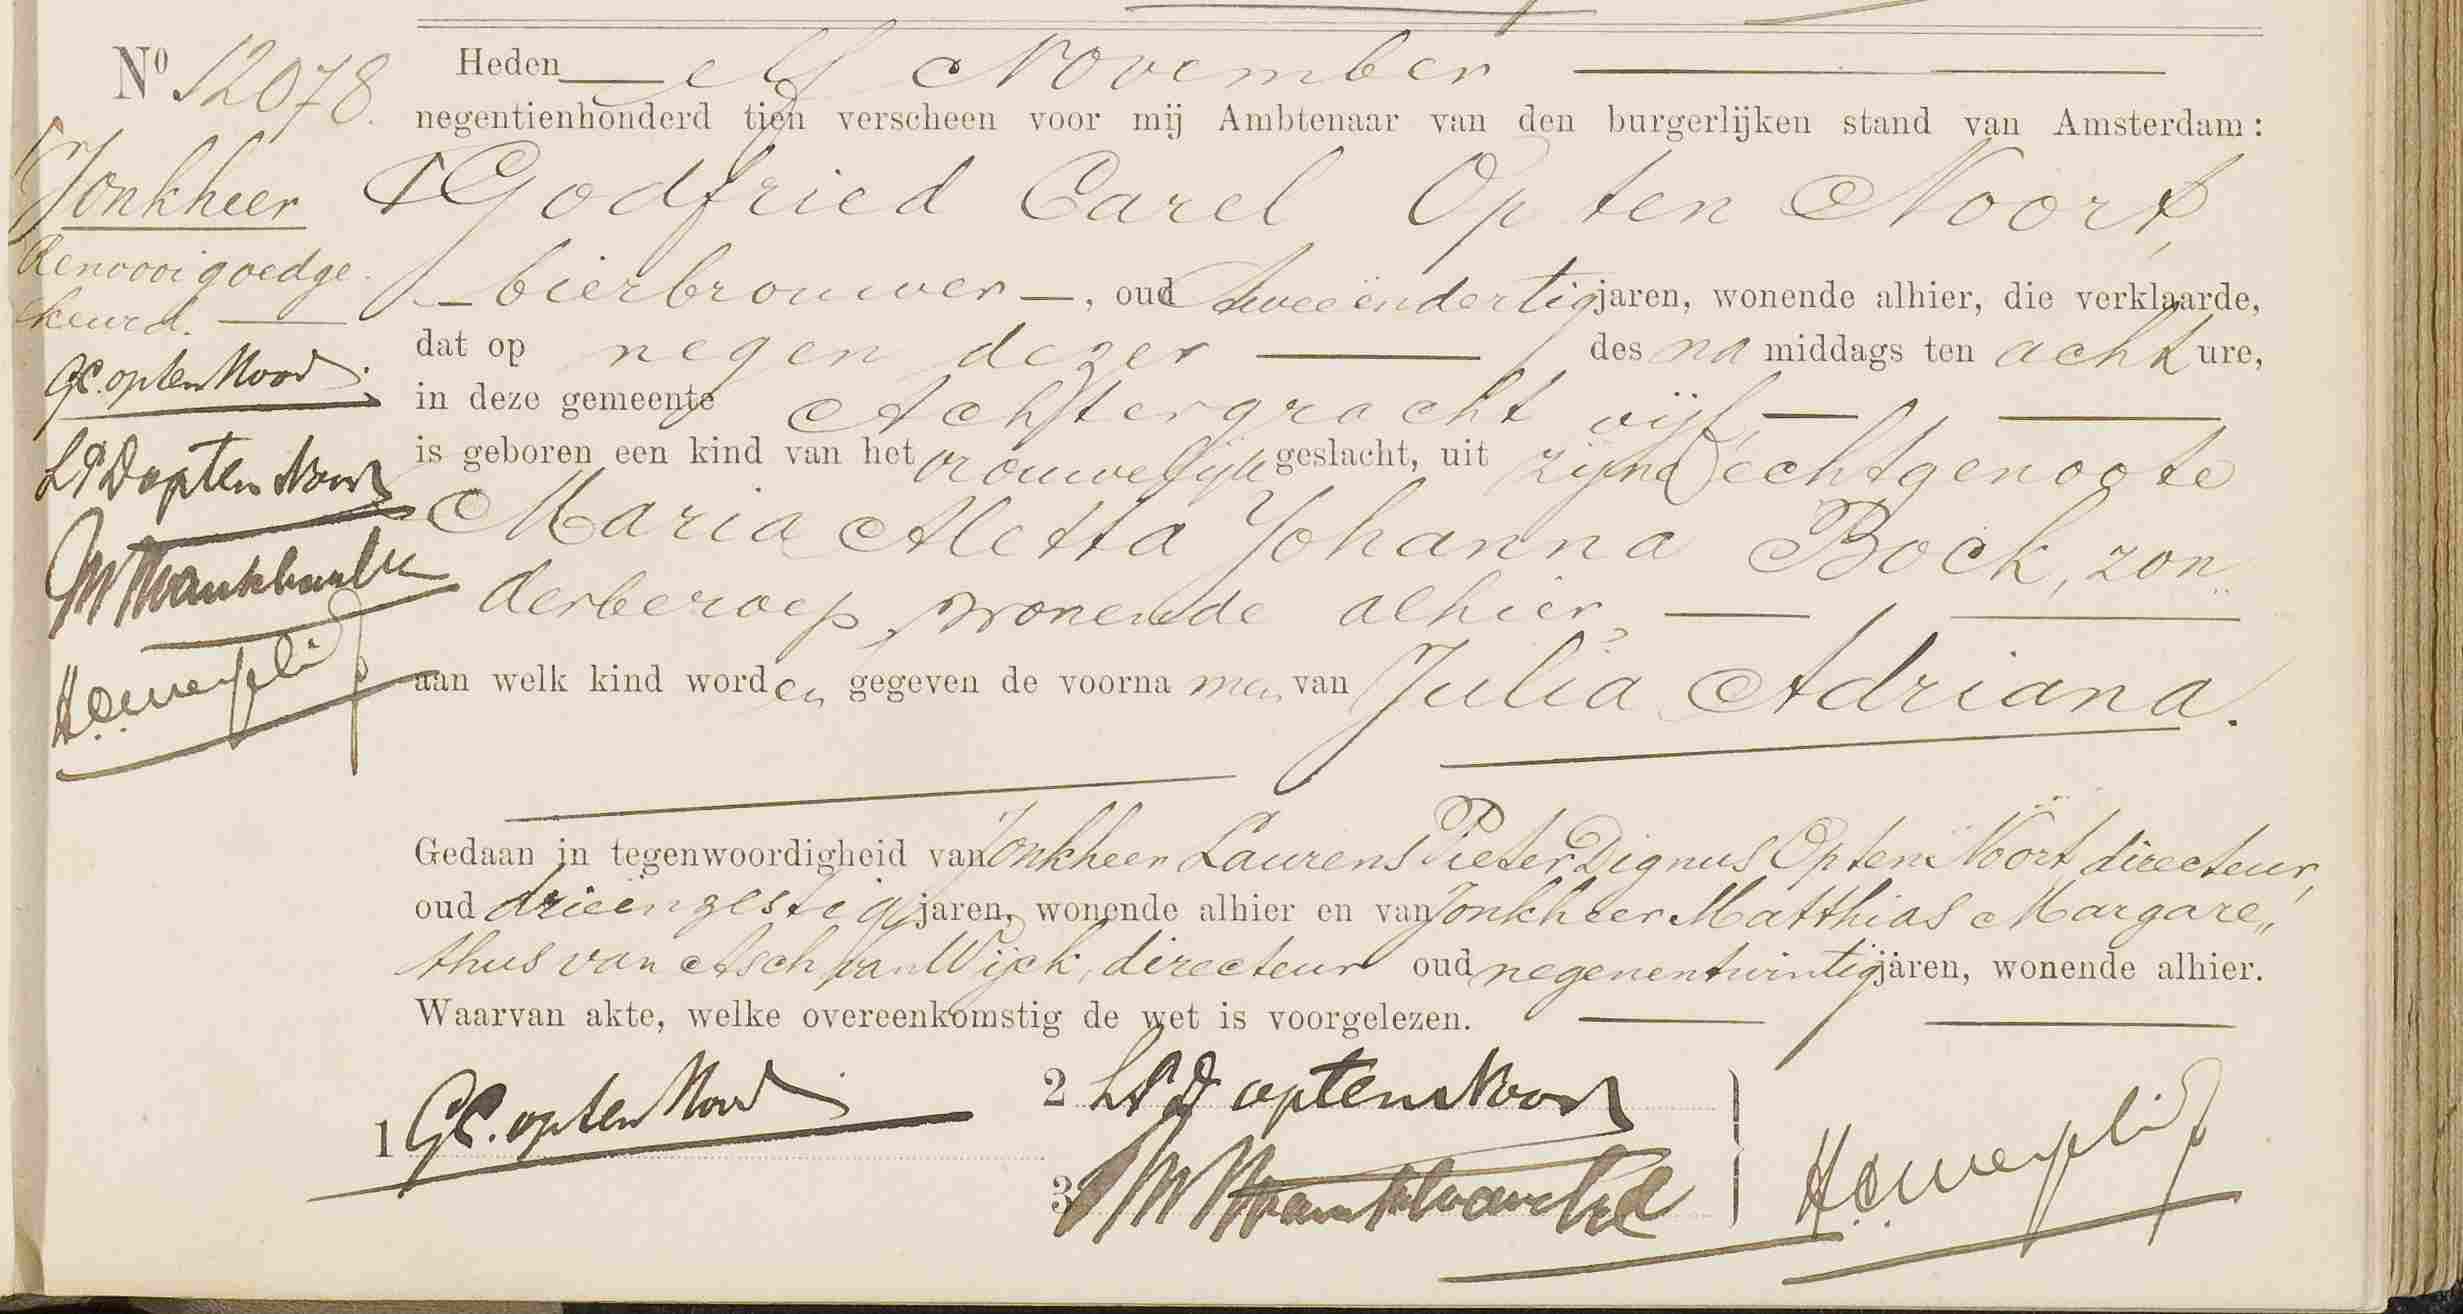 Nº 12078. Heden elf November
negentienhonderd tien verscheen voor mij Ambtenaar van den burgerlijken stand van Amsterdam:
Jonkheer
Godfried Carel Op ten Noort,
Renvooi goedge-
keurd.
bierbrouwer, oud tweeëndertig jaren, wonende alhier, die verklaarde,
dat op negen dezer des na middags ten acht ure,
G.C. op ten Noort
in deze gemeente Achtergracht vijf,
is geboren een kind van het vrouwelijk geslacht, uit zijne echtgenoote
L P D op ten Noort
Maria Aletta Johanna Bock, zon„
derberoep, wonende alhier,
aan welk kind worden gegeven de voornamen van Julia Adriana.
Gedaan in tegenwoordigheid van Jonkheer Laurens Pieter Dignus Op ten Noort, directeur,
oud drieënzestig jaren, wonende alhier en van Jonkheer Matthias Margare„
thus van Asch van Wijck, directeur oud negenentwintig jaren, wonende alhier.
Waarvan akte, welke overeenkomstig de wet is voorgelezen.
1 G.C. op ten Noort
2 L P D op ten Noort
3